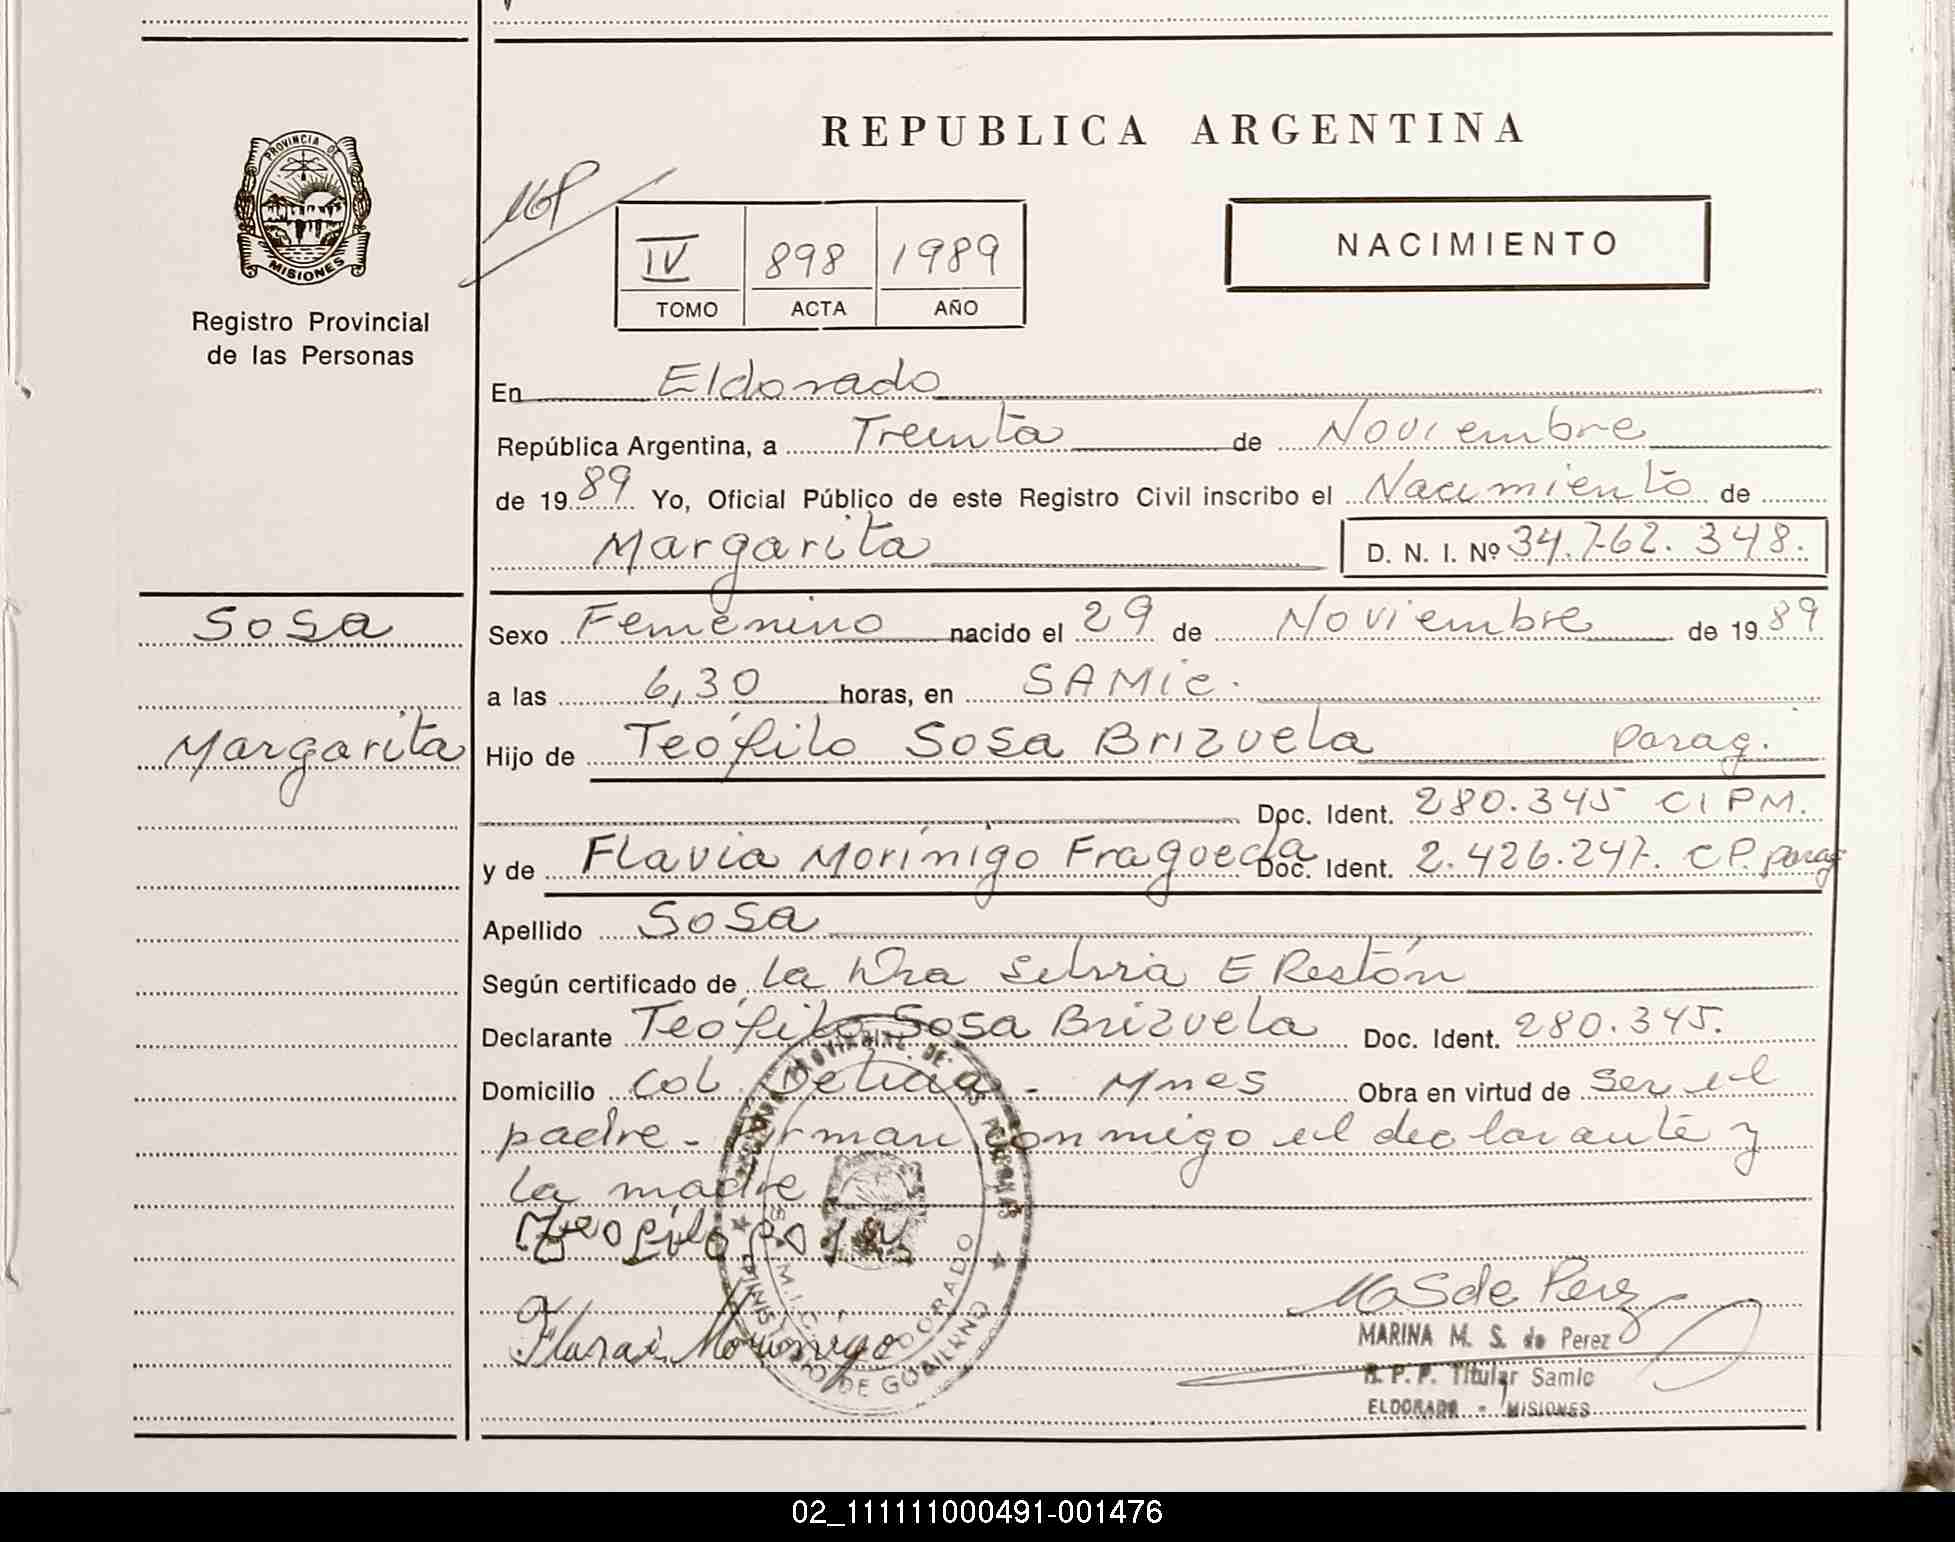 REPUBLICA ARGENTINA
PROVINCIA DE
MISIONES
Registro Provincial
de las Personas
IV 898 1989
TOMO ACTA AÑO
NACIMIENTO
En Eldorado
República Argentina, a Treinta de Noviembre
de 1989 Yo, Oficial Público de este Registro Civil inscribo el Nacimiento de
Margarita D. N. I. Nº 34.762.348.
Sosa
Margarita
Sexo Femenino nacido el 29 de Noviembre de 1989
a las 6,30 horas, en SAMic.
Hijo de Teófilo Sosa Brizuela parag.
Doc. Ident. 280.345 CI PM.
y de Flavia Morínigo Fragueda Doc. Ident. 2.426.247. CP. parag
Apellido Sosa
Según certificado de la Dra Silvia E Restón
Declarante Teófilo Sosa Brizuela Doc. Ident. 280.345.
Domicilio Col. Delicia - Mnes Obra en virtud de ser el
padre - Firman conmigo el declarante y
la madre
Teofilo Sosa
Morinigo
MaSde Perez
MARINA M. S. de Perez
R. P. P. Titular Samic
ELDORADO - MISIONES
02_111111000491-001476